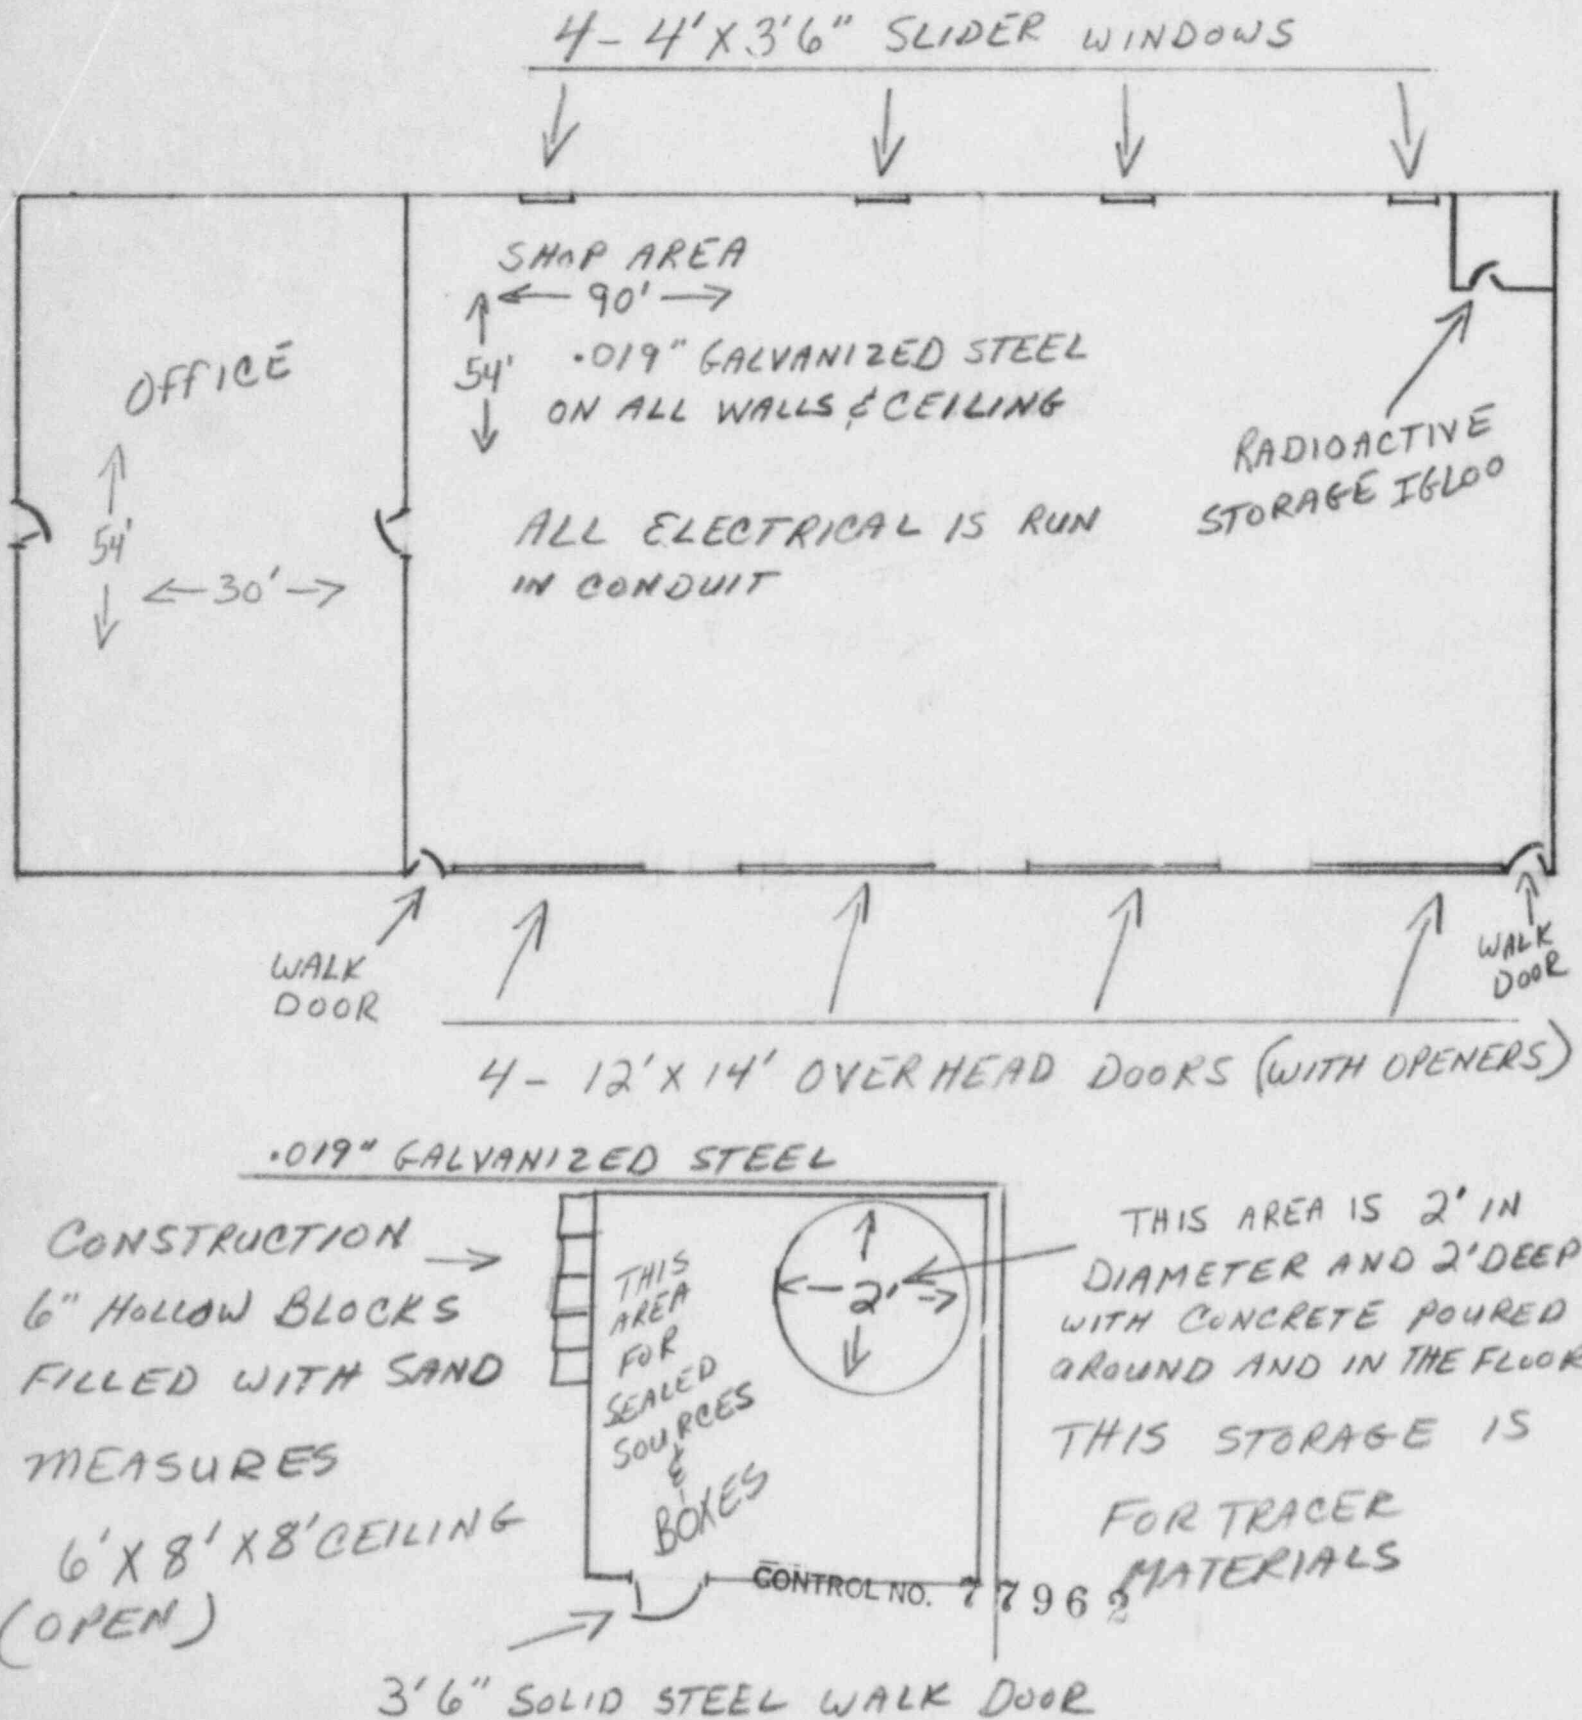 4 - 4' X 3'6" SLIDER WINDOWS
SHOP AREA
90'
54'
.019" GALVANIZED STEEL
ON ALL WALLS & CEILING
OFFICE
54'
30'
ALL ELECTRICAL IS RUN
IN CONDUIT
RADIOACTIVE
STORAGE IGLOO
WALK
DOOR
WALK
DOOR
4 - 12' X 14' OVERHEAD DOORS (WITH OPENERS)
.019" GALVANIZED STEEL
CONSTRUCTION
6" HOLLOW BLOCKS
FILLED WITH SAND
MEASURES
6' X 8' X 8' CEILING
(OPEN)
THIS
AREA
FOR
SEALED
SOURCES
&
BOXES
2'
THIS AREA IS 2' IN
DIAMETER AND 2' DEEP
WITH CONCRETE POURED
AROUND AND IN THE FLOOR
THIS STORAGE IS
FOR TRACER
MATERIALS
CONTROL NO. 77962
3'6" SOLID STEEL WALK DOOR